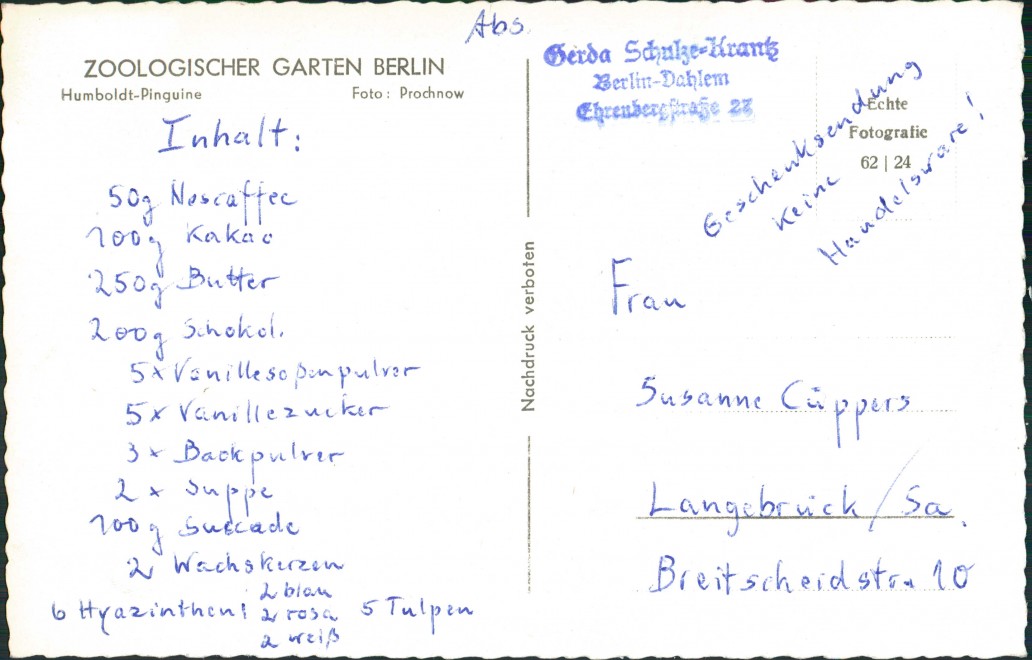 Abs.
ZOOLOGISCHER GARTEN BERLIN
Humboldt-Pinguine Foto: Prochnow
Inhalt:
50g Nescaffee
100g Kakao
250g Butter
200g Schokol.
5x Vanillesoßenpulver
5x Vanillezucker
3x Backpulver
2x Suppe
100g Succade
2 Wachskerzen
6 Hyazinthen: 2 blau
2 rosa
2 weiß
5 Tulpen
Nachdruck verboten
Gerda Schulze-Krantz
Berlin-Dahlem
Ehrenbergstraße 27
Echte
Fotografie
62 | 24
Geschenksendung
Keine
Handelsware!
Frau
Susanne Cüppers
Langebrück/Sa.
Breitscheidstr. 10